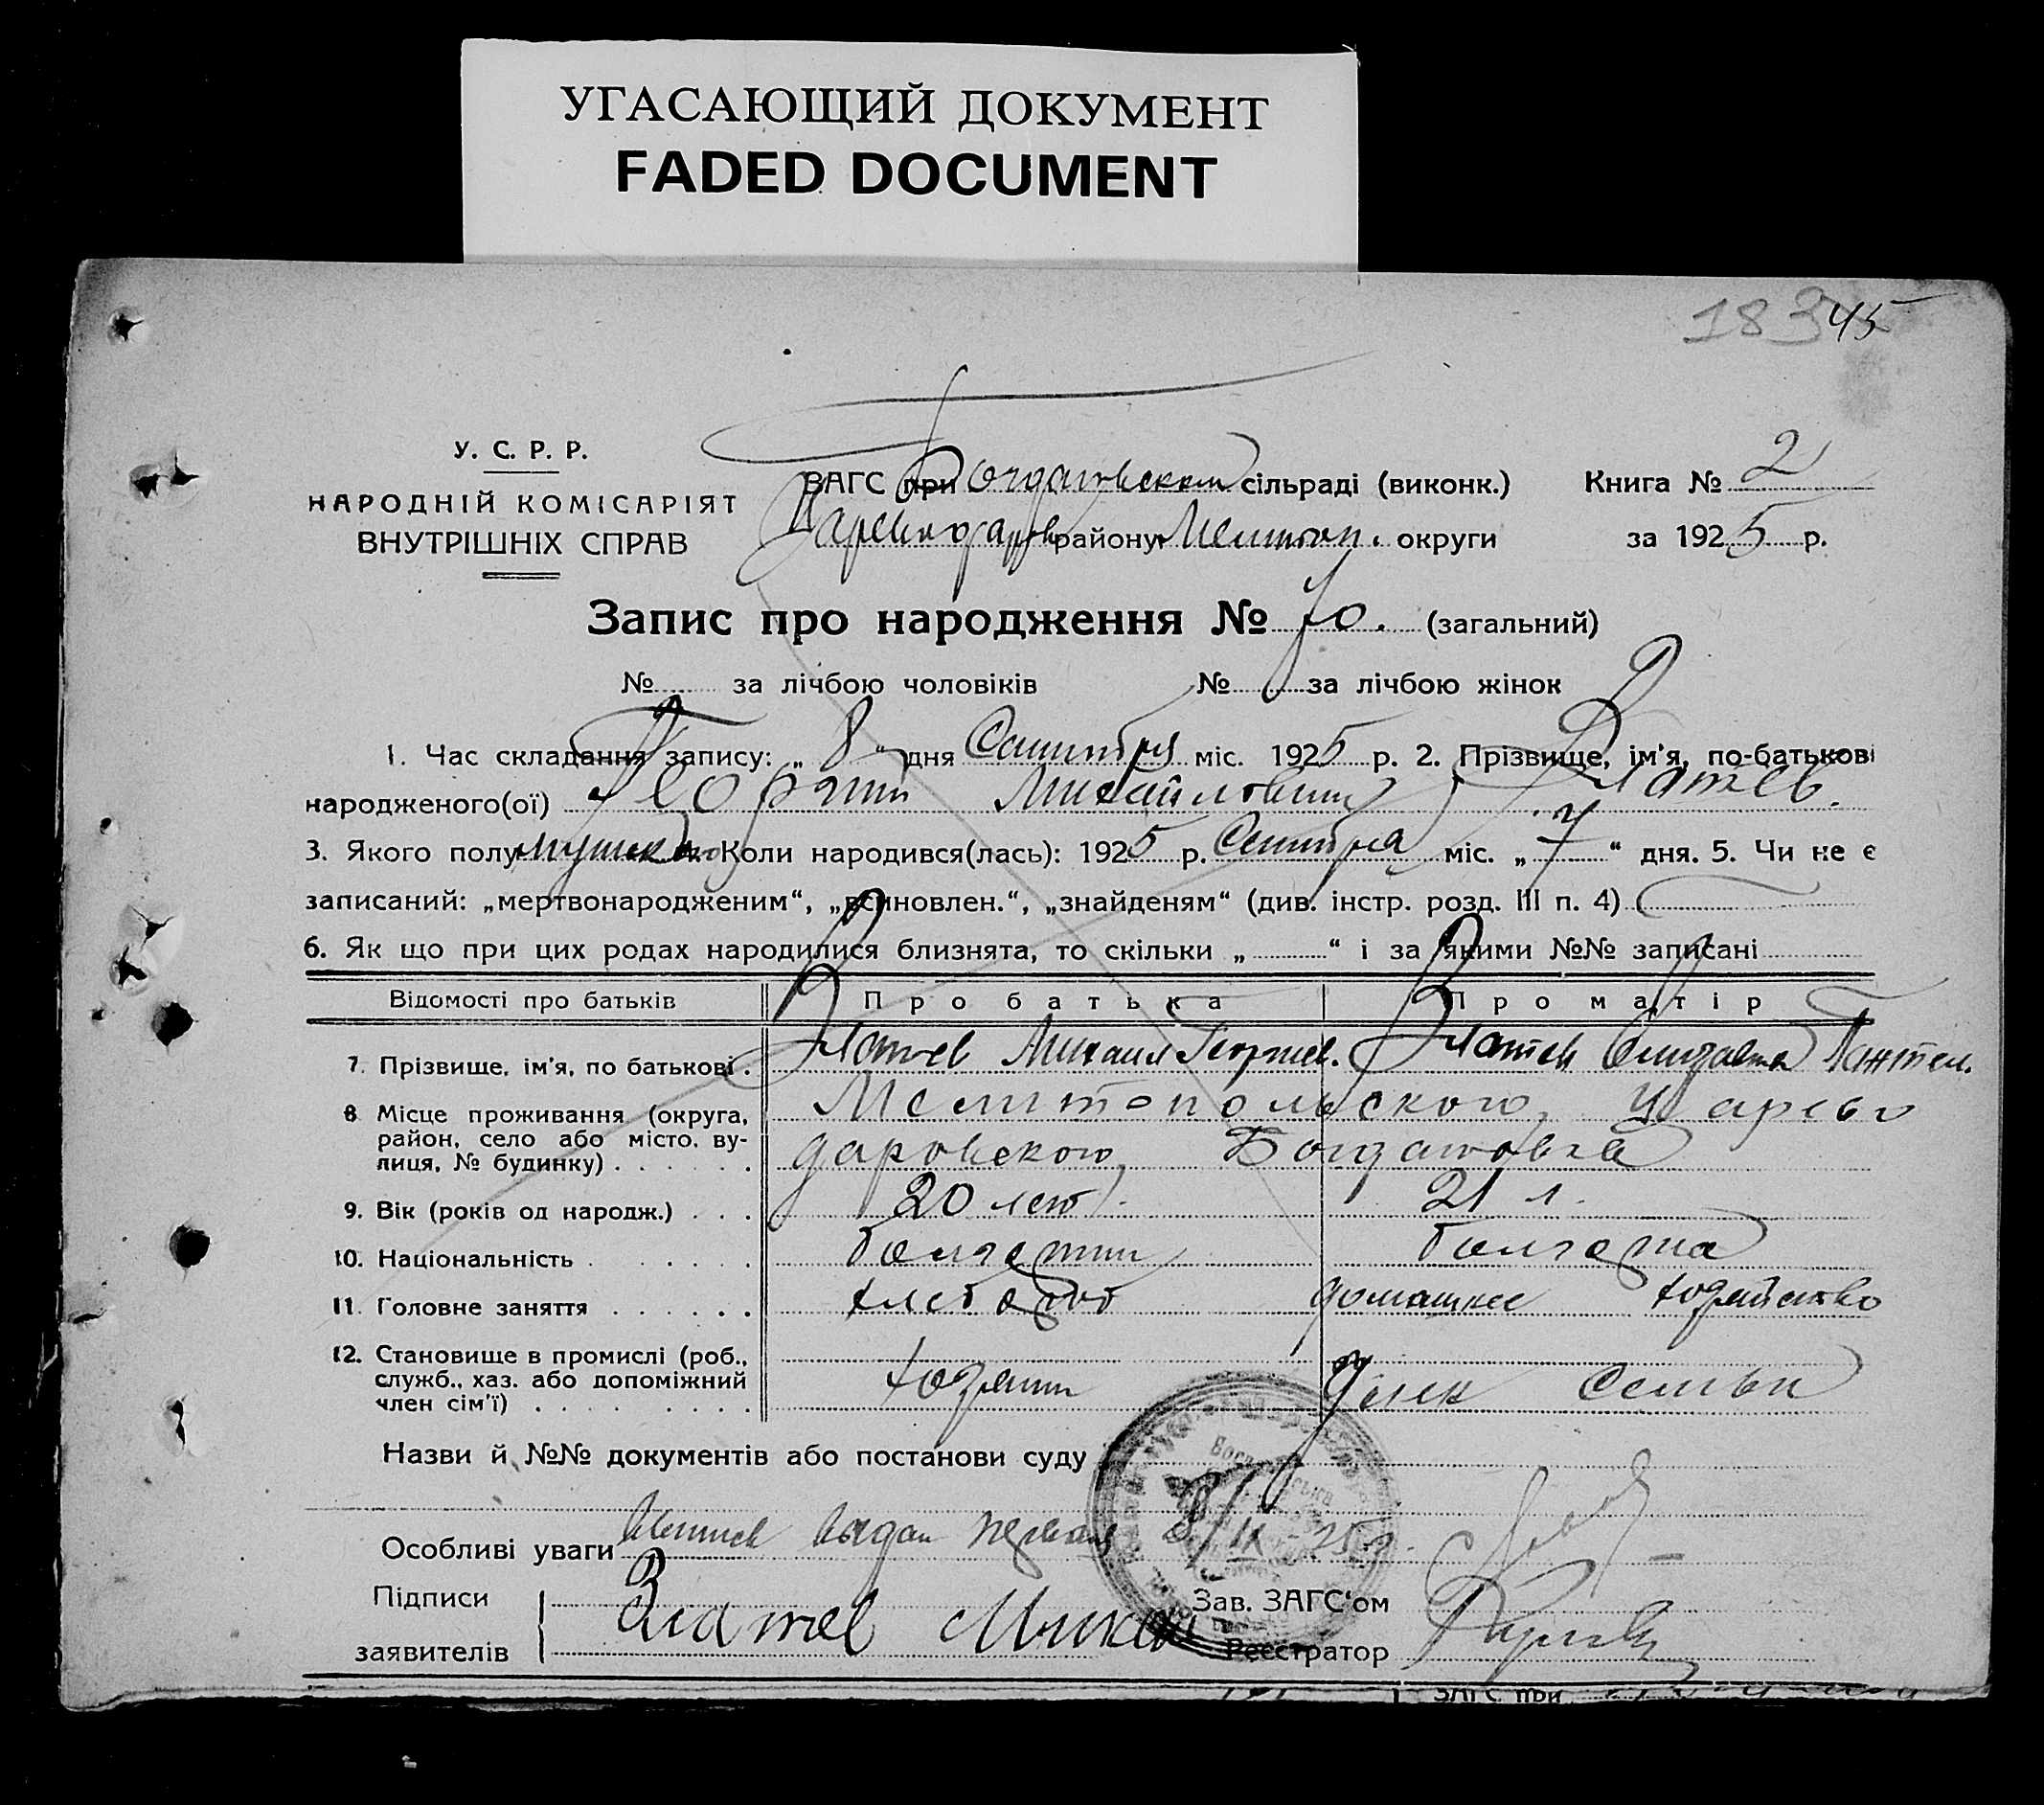 УГАСАЮЩИЙ ДОКУМЕНТ
FADED DOCUMENT
183 45
У. С. Р. Р.
НАРОДНІЙ КОМІСАРІЯТ
ВНУТРІШНІХ СПРАВ
ЗАГС при Богдановском сільраді (виконк.) Книга № 2
Цареводаров району Мелитоп. округи за 1925 р.
Запис про народження № 70. (загальний)
№ за лічбою чоловіків № за лічбою жінок
1. Час складання запису: „ 8 “ дня Сентября міс. 1925 р. 2. Прізвище, ім'я, по-батькові
народженого(ої) Михайлович Златев.
3. Якого полу мужского 4. Коли народився(лась): 1925 р. Сентября міс. „ 7 “ дня. 5. Чи не є
записаний: „мертвонародженим“, „всиновлен.“, „знайденям“ (див. інстр. розд. III п. 4)
6. Як що при цих родах народилися близнята, то скільки „ “ і за якими №№ записані
Відомості про батьків Про батька Про матір
7. Прізвище, ім'я, по батькові . Златев Михаил Георгиев. Златев Елизавета Пантел.
8 Місце проживання (округа, Мелитопольского, Царево
район, село або місто, ву- даровского, Богдановка
лиця, № будинку) . . . . . .
9. Вік (років од народж.) . . . 20 лет 21 л.
10. Національність . . . . . . болгарин болгарка
11. Головне заняття . . . . . . хлебороб домашнее хозяйство
12. Становище в промислі (роб.,
служб., хаз. або допоміжний хозяин член семьи
член сім'ї) . . . . . . . .
Назви й №№ документів або постанови суду
Особливі уваги выдан 8/IX-25 г.
Підписи Златев Михаил Зав. ЗАГС'ом
заявителів Реєстратор
ЗАГС при